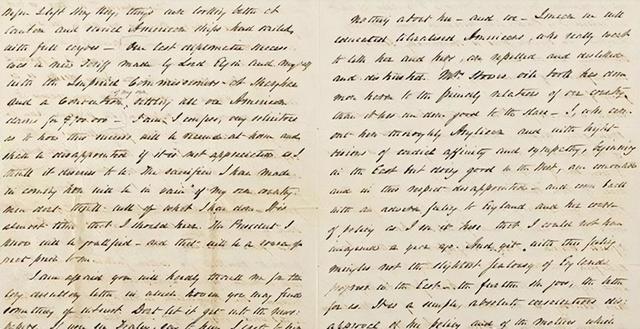 When I left Hong Kong, things were looking better at
Canton and several American ships had sailed
with full cargoes - Our last diplomatic success
was a new Tariff made by Lord Elgin and myself
with the Imperial Commissioners at Shanghai
and a Convention, of my own settling all our American
claims for - I am, I confess, very solicitous
as to how this success will be received at home and
shall be disappointed if it is not appreciated as I
think it deserves to be. The sacrifices I have made
in coming here will be in vain if my own country
men don't think well of what I have done. It is
almost time that I should hear. The President I
know will be gratified - and that will be a source of
great pride to me.
I am afraid you will hardly thank me for this
very desultory letter in which however you may find
something of interest. Don't let it get into the news
papers.
nothing about her - and we - I mean we well
educated liberalised Americans, who really want
to like her and hers are repelled and disliked
and distrusted. Mrs Stowe's vile book has done
more harm to the friendly relations of our country
than it has ever done good to the slave - I, who came
out here thoroughly Anglican and with high
visions of cordial affinity and sympathy, beginning
in the East but doing good in the West, am
and in this respect disappointed - and come back
with an adverse feeling to England and her course
of policy as I see it here that I could not have
imagined a year ago. And yet with this feeling
mingles not the slightest jealousy of England's
progress in the East - the further she goes, the better
for us. It is a simple, absolute conscientious dis-
approval of the policy and of the motives which